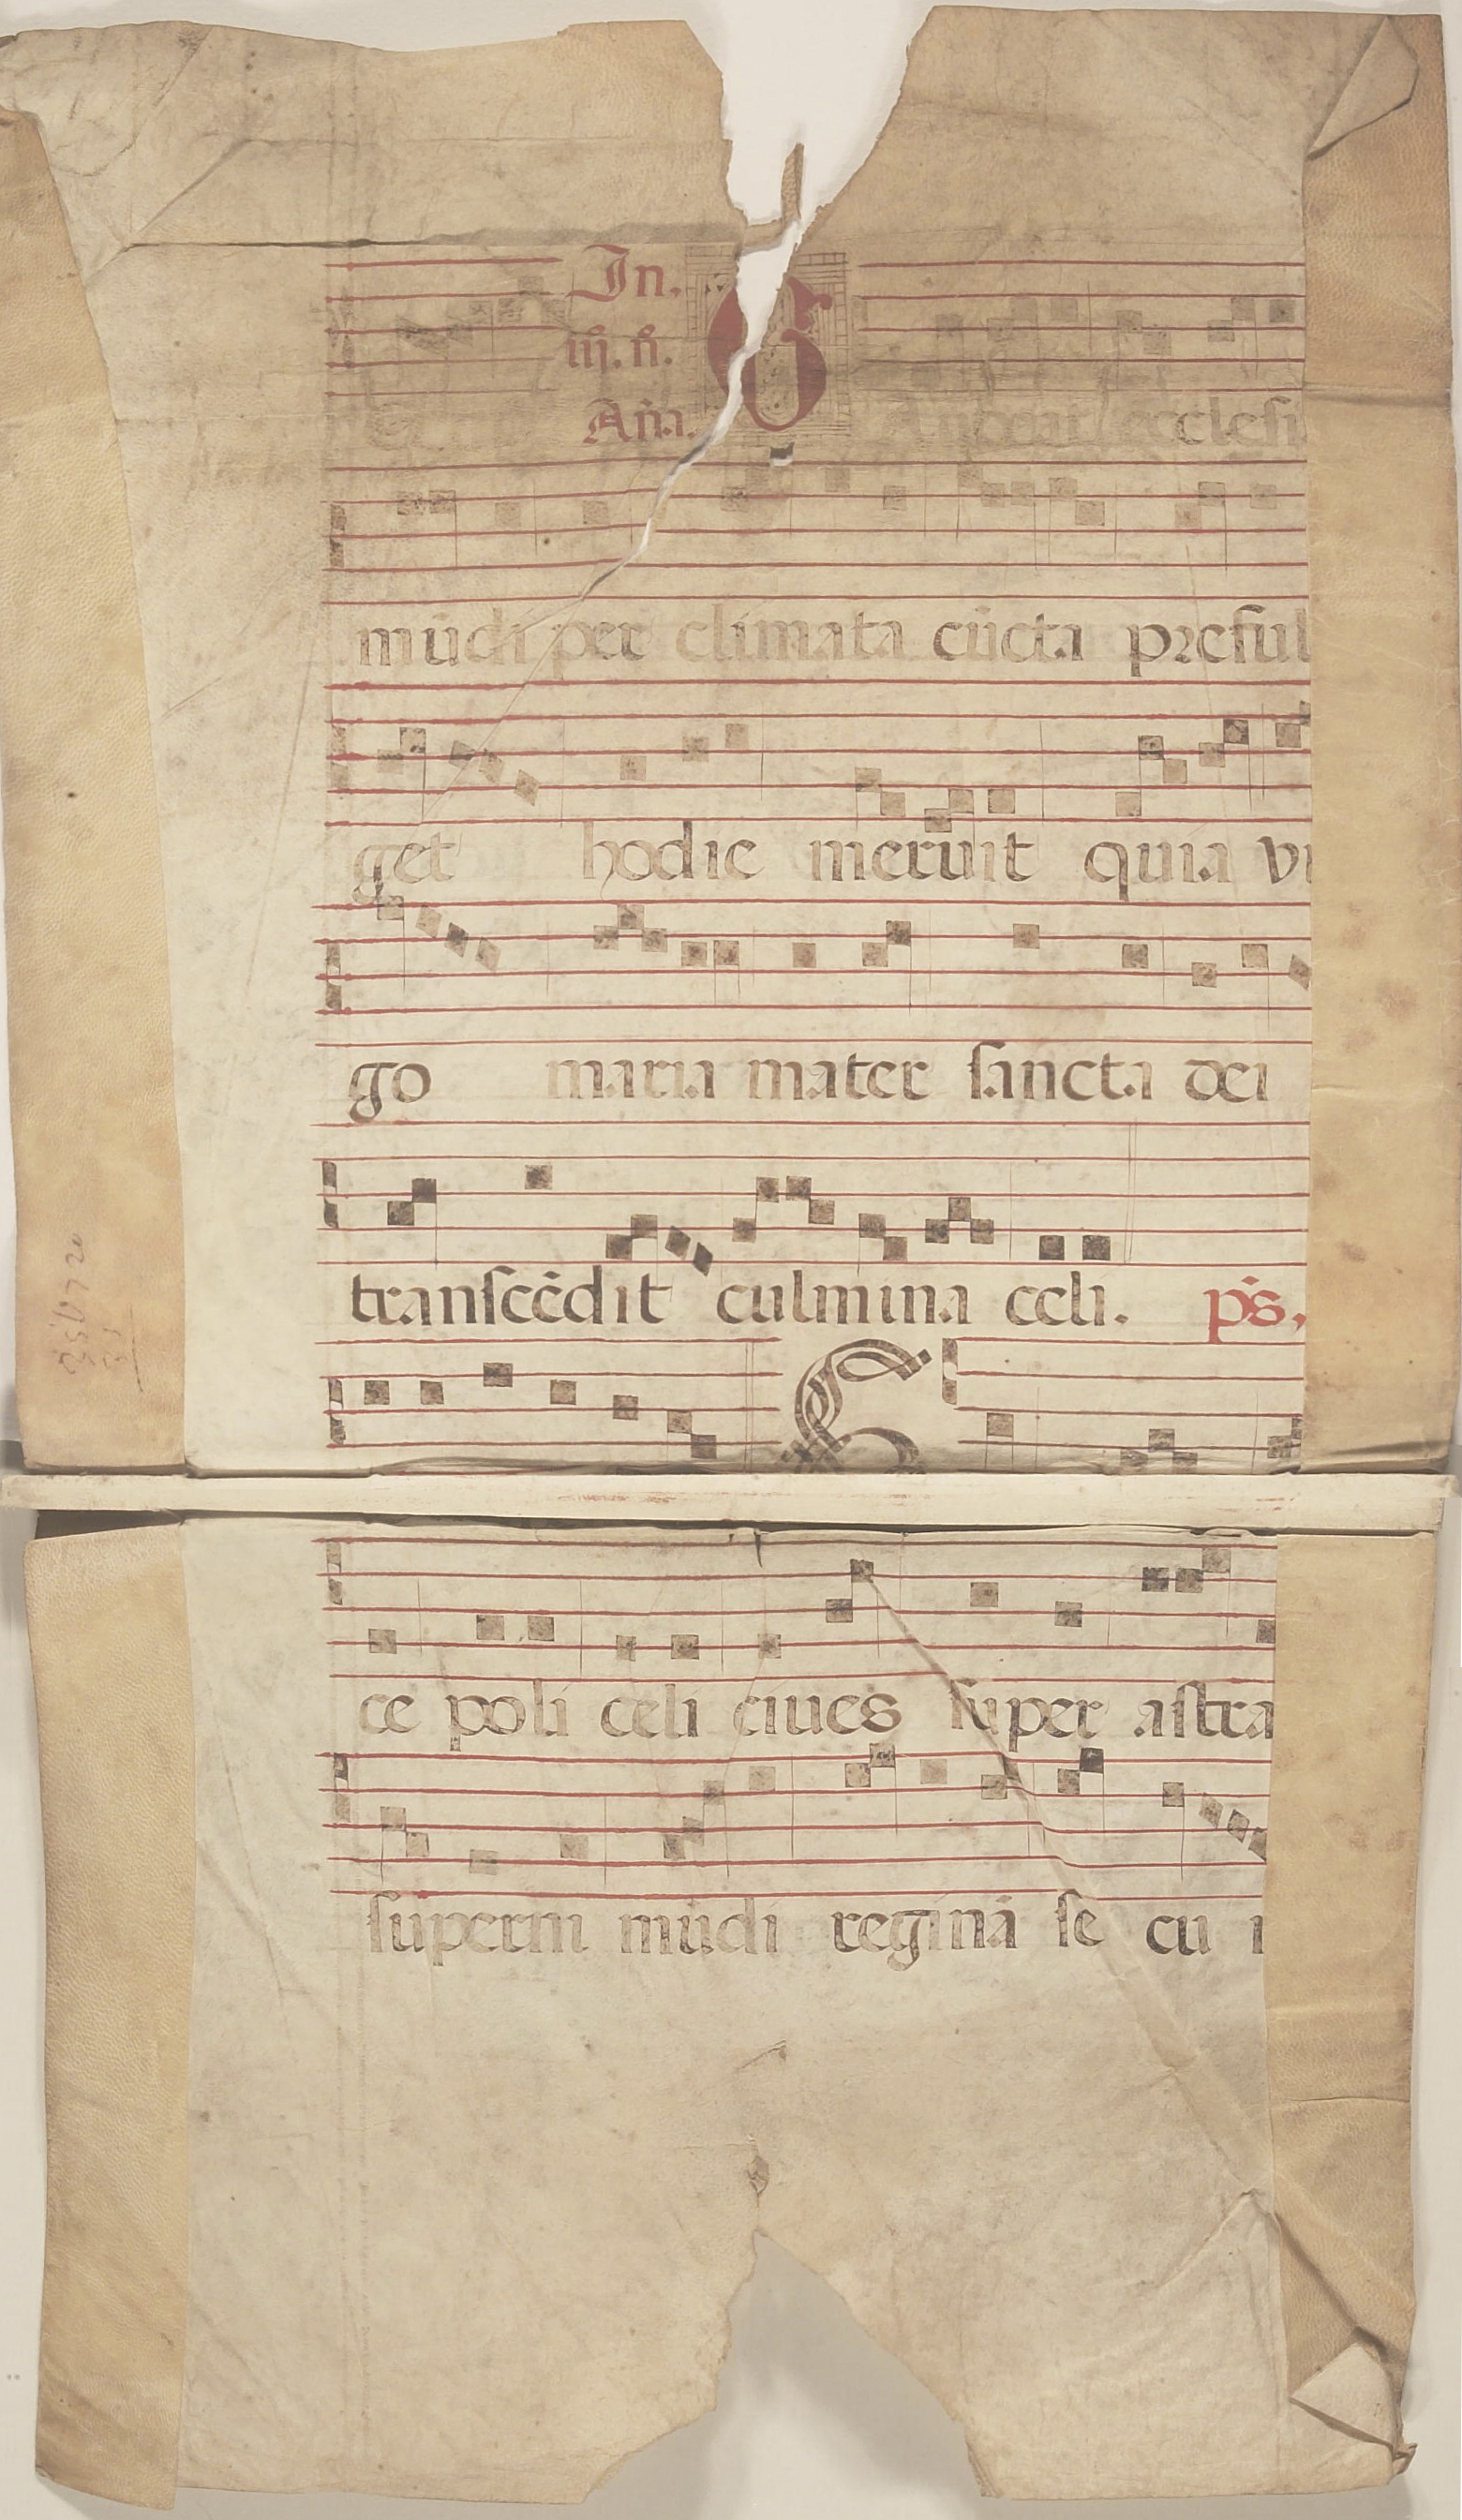 In.
iij. n̄.
Añ.
G Audeat ecclesi
mūdi per climata cūcta preful
get hodie meruit quia vi
go maria mater sancta dei
transcēdit culmina celi. ps̄.
ce poli celi ciues super astra
superni mūdi reginā se cu